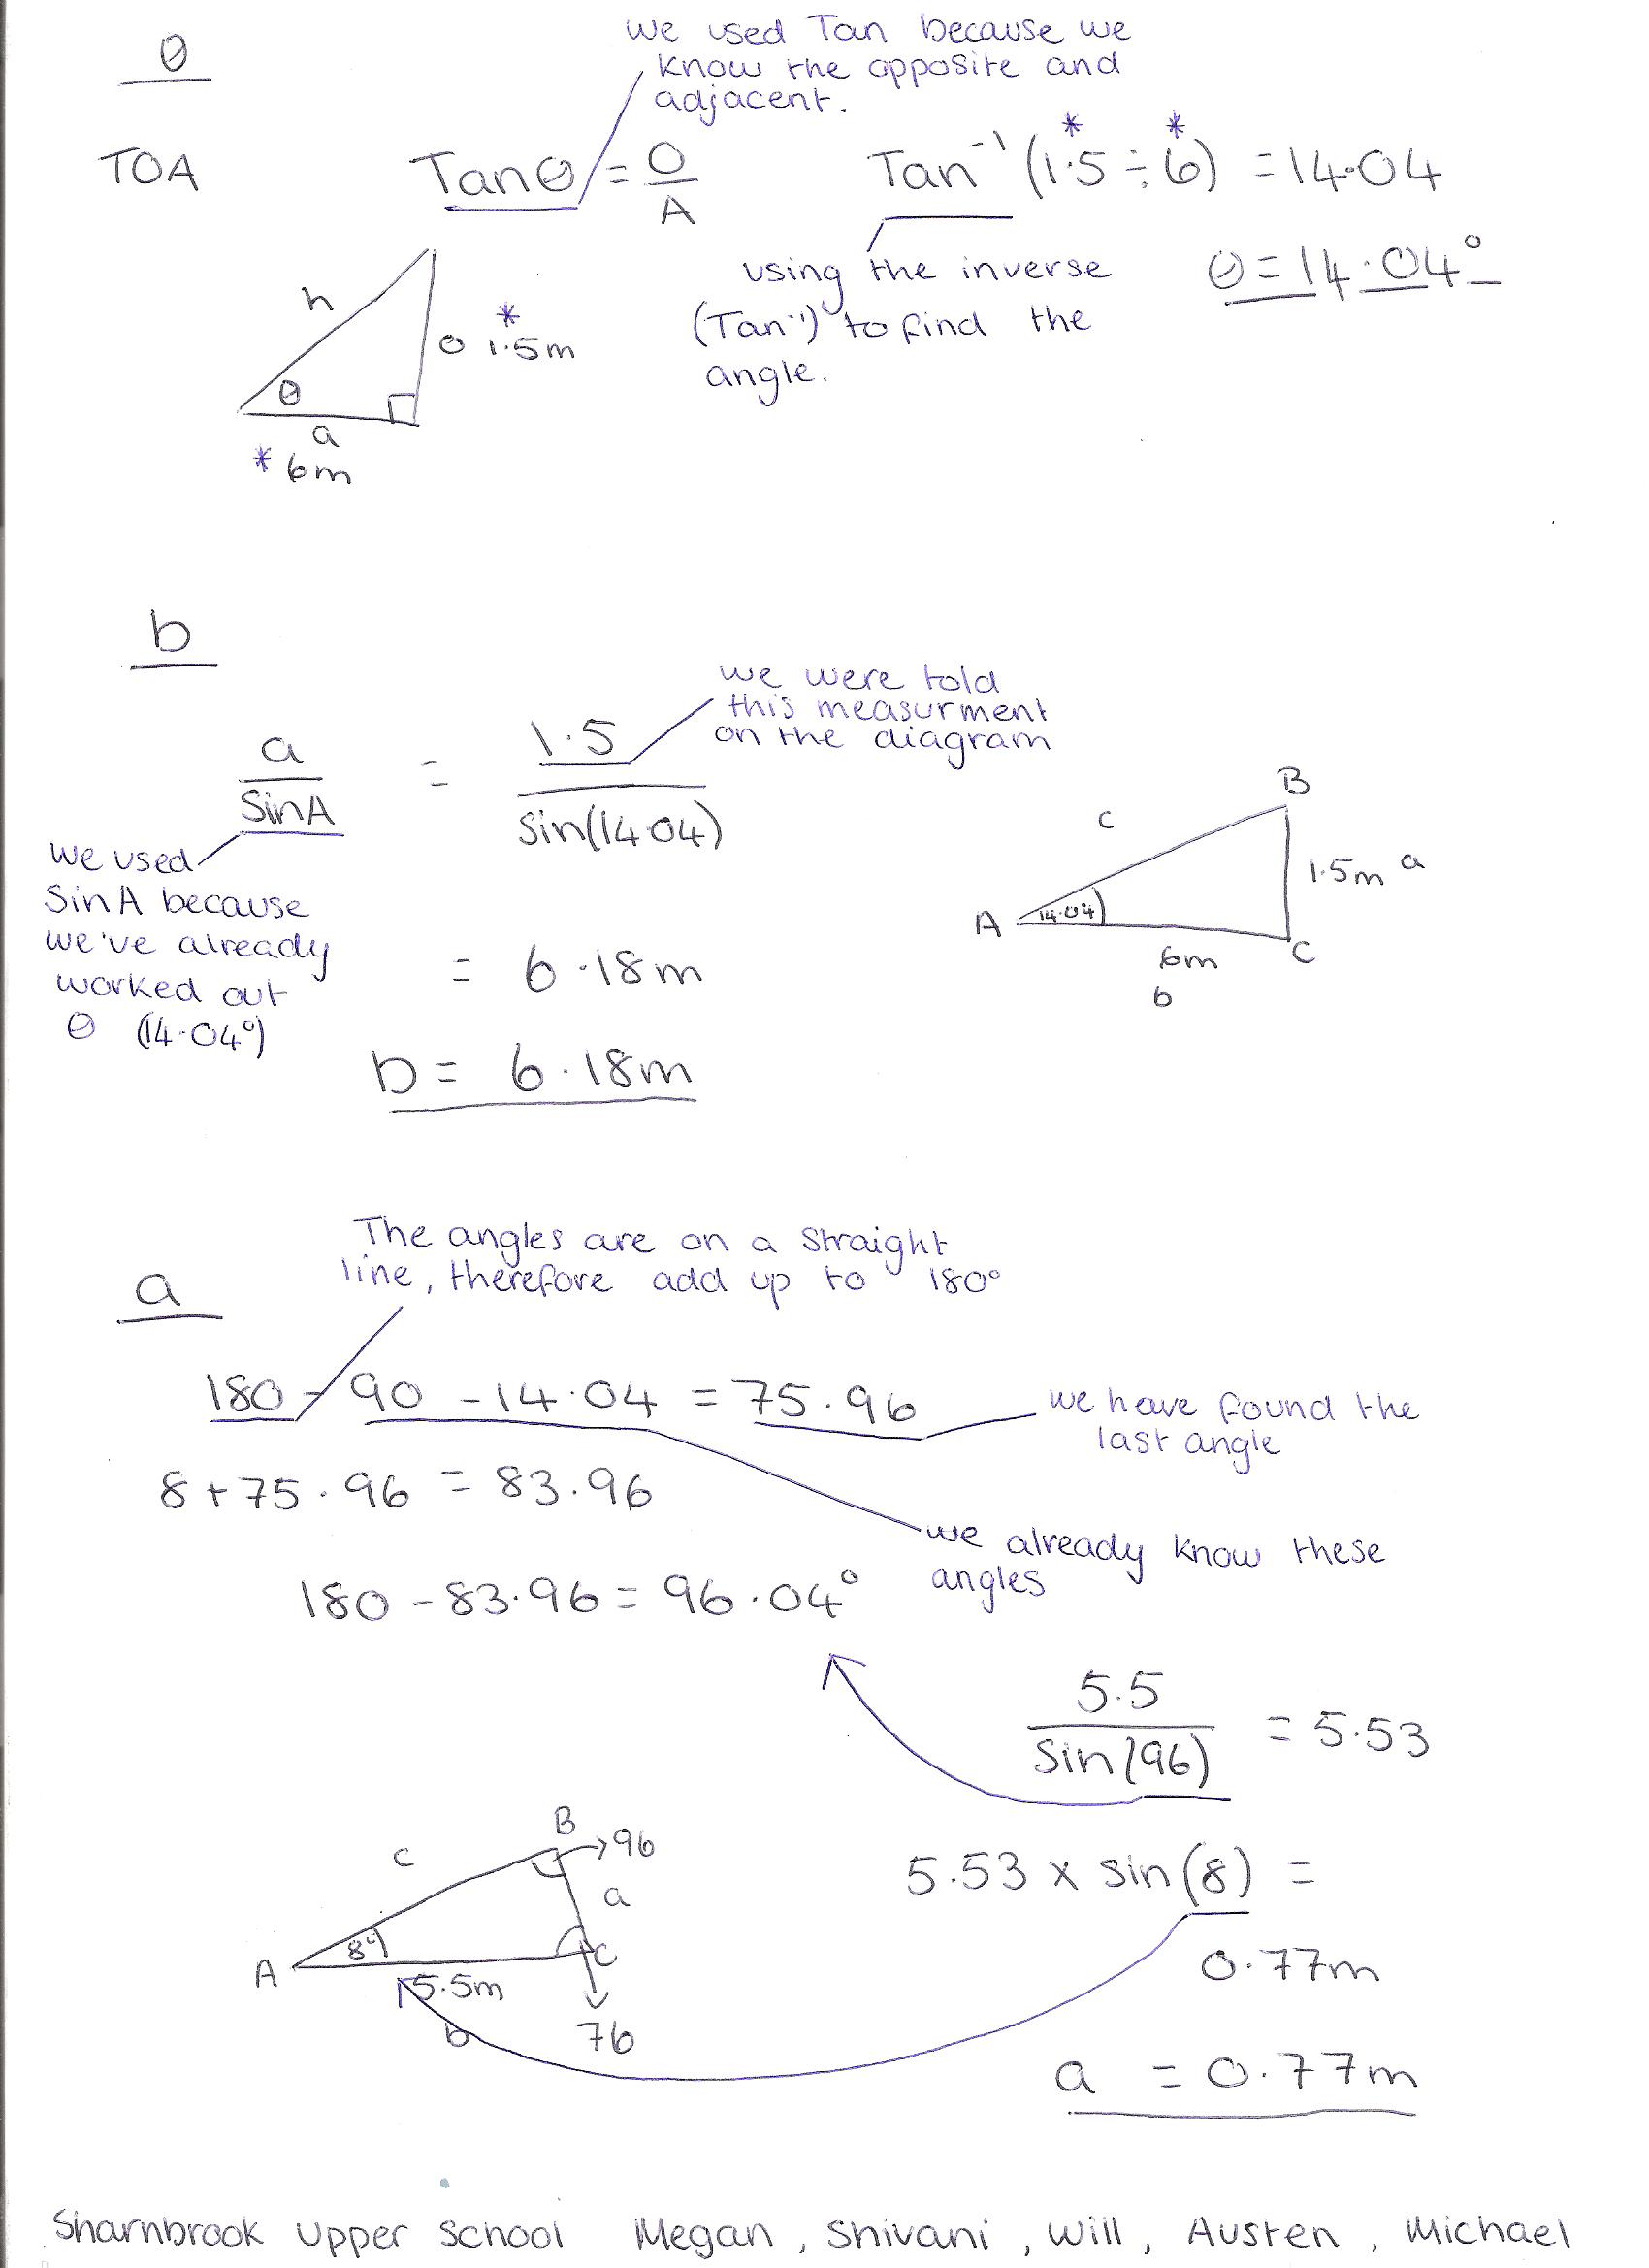 θ
we used Tan because we
know the opposite and
adjacent.
TOA
Tanθ = O/A
* *
Tan⁻¹ (1.5 ÷ 6) = 14.04
using the inverse
(Tan⁻¹) to find the
angle.
θ = 14.04°
h
*
o 1.5m
θ
a
* 6m
b
we were told
this measurment
on the diagram
a/SinA = 1.5/sin(14.04)
we used
SinA because
we've already
worked out
θ (14.04°)
= 6.18m
b = 6.18m
B
c
1.5m a
A 14.04
6m C
b
The angles are on a straight
line, therefore add up to 180°
a
180 - 90 - 14.04 = 75.96
we have found the
last angle
8 + 75.96 = 83.96
we already know these
angles
180 - 83.96 = 96.04°
5.5/sin(96) = 5.53
B
96
c
a
5.53 x sin(8) =
8°
A C
5.5m
0.77m
b
76
a = 0.77m
Sharnbrook Upper School Megan, Shivani, Will, Austen, Michael